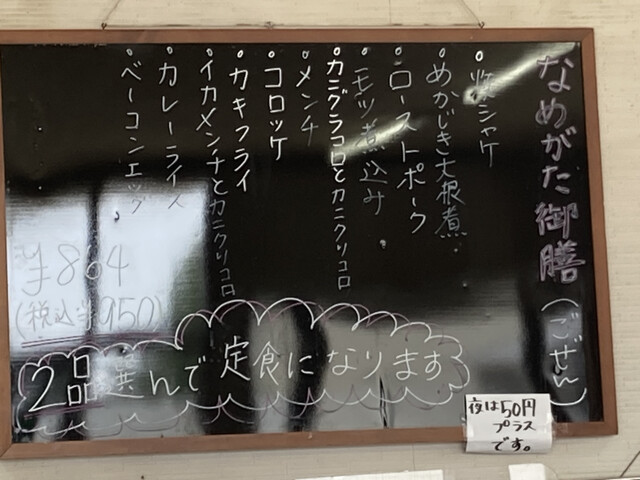 なめがた御膳(ごぜん)
焼シャケ
めかじき大根煮
ローストポーク
モツ煮込み
カニグラコロとカニクリコロ
メンチ
コロッケ
カキフライ
イカメンチとカニクリコロ
カレーライス
ベーコンエッグ
¥864
(税込¥950)
2品選んで定食になります
夜は50円
プラス
です。